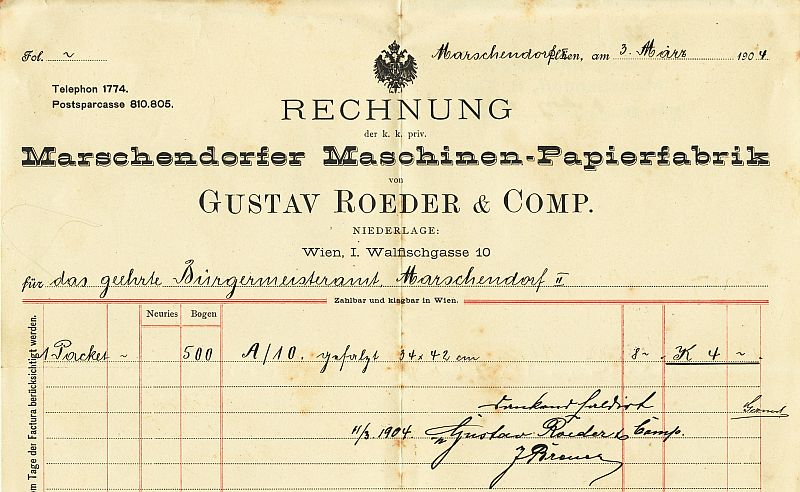 Fol. ~
Marschendorf, am 3. März 1904
Telephon 1774.
Postsparcasse 810.805.
RECHNUNG
der k. k. priv.
Marschendorfer Maschinen-Papierfabrik
von
GUSTAV ROEDER & COMP.
NIEDERLAGE:
Wien, I. Walfischgasse 10
für das geehrte Bürgermeisteramt, Marschendorf II
Zahlbar und klagbar in Wien.
Neuries Bogen
1 Packet ~ 500 A/10. gefalzt 34 x 42 cm 8 ~ K 4 ~
dankend saldirt
11/3. 1904. Gustav Roeder & Comp.
om Tage der Factura berücksichtigt werden.